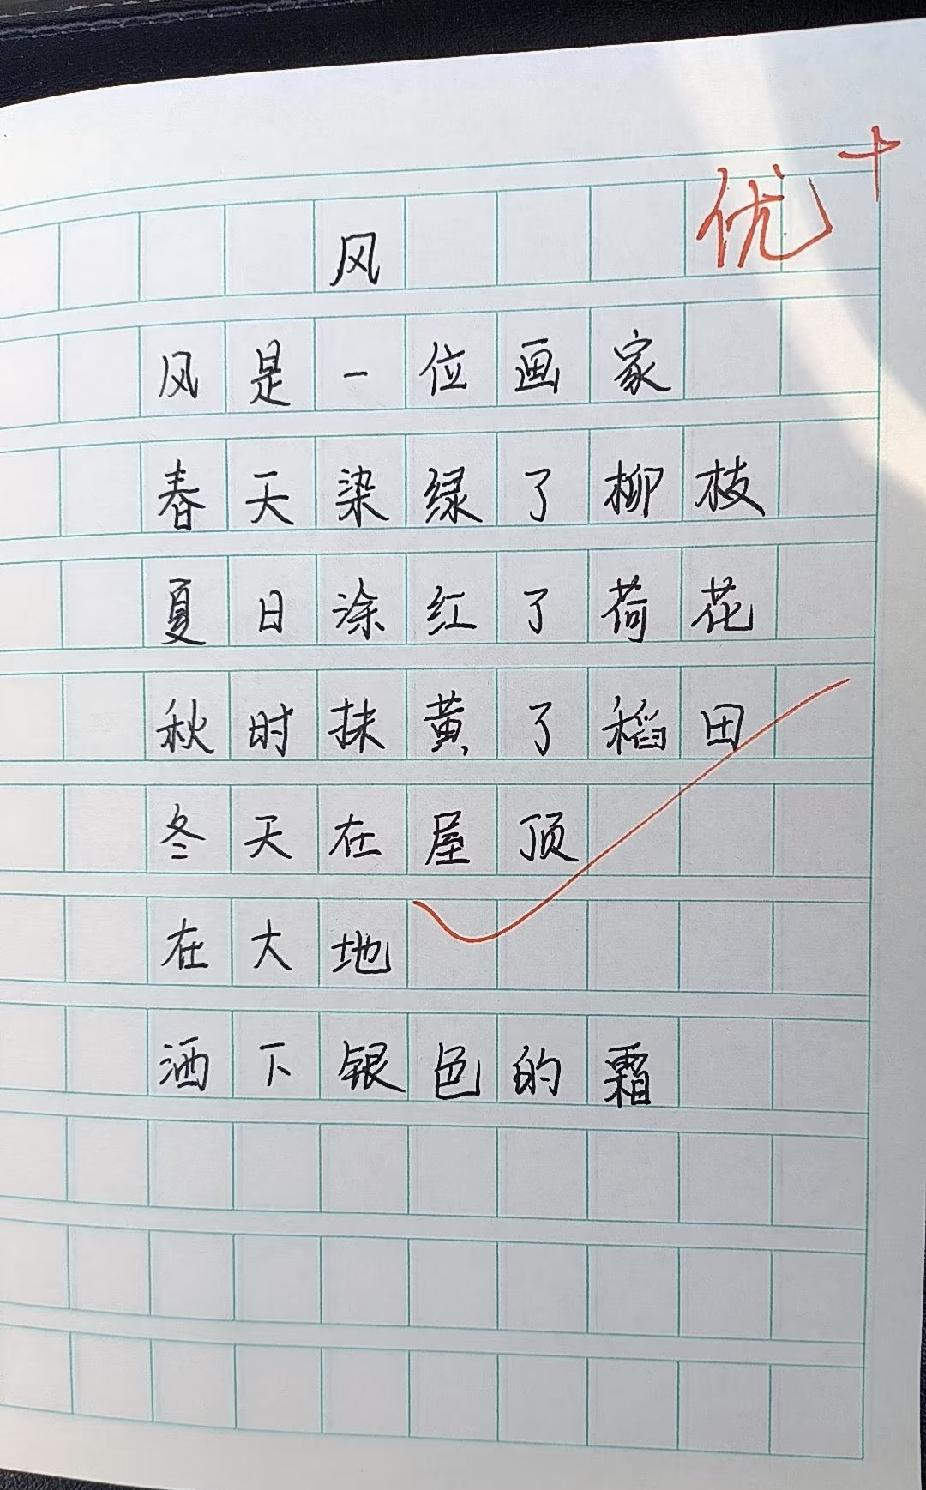 优+
风
风是一位画家
春天染绿了柳枝
夏日涂红了荷花
秋时抹黄了稻田
冬天在屋顶
在大地
洒下银色的霜